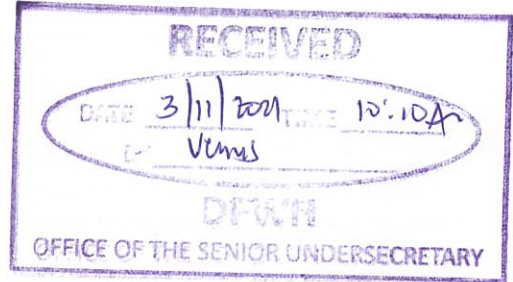 RECEIVED
DATE 3/11/2021 TIME 10:10A
Venus
DPWH
OFFICE OF THE SENIOR UNDERSECRETARY